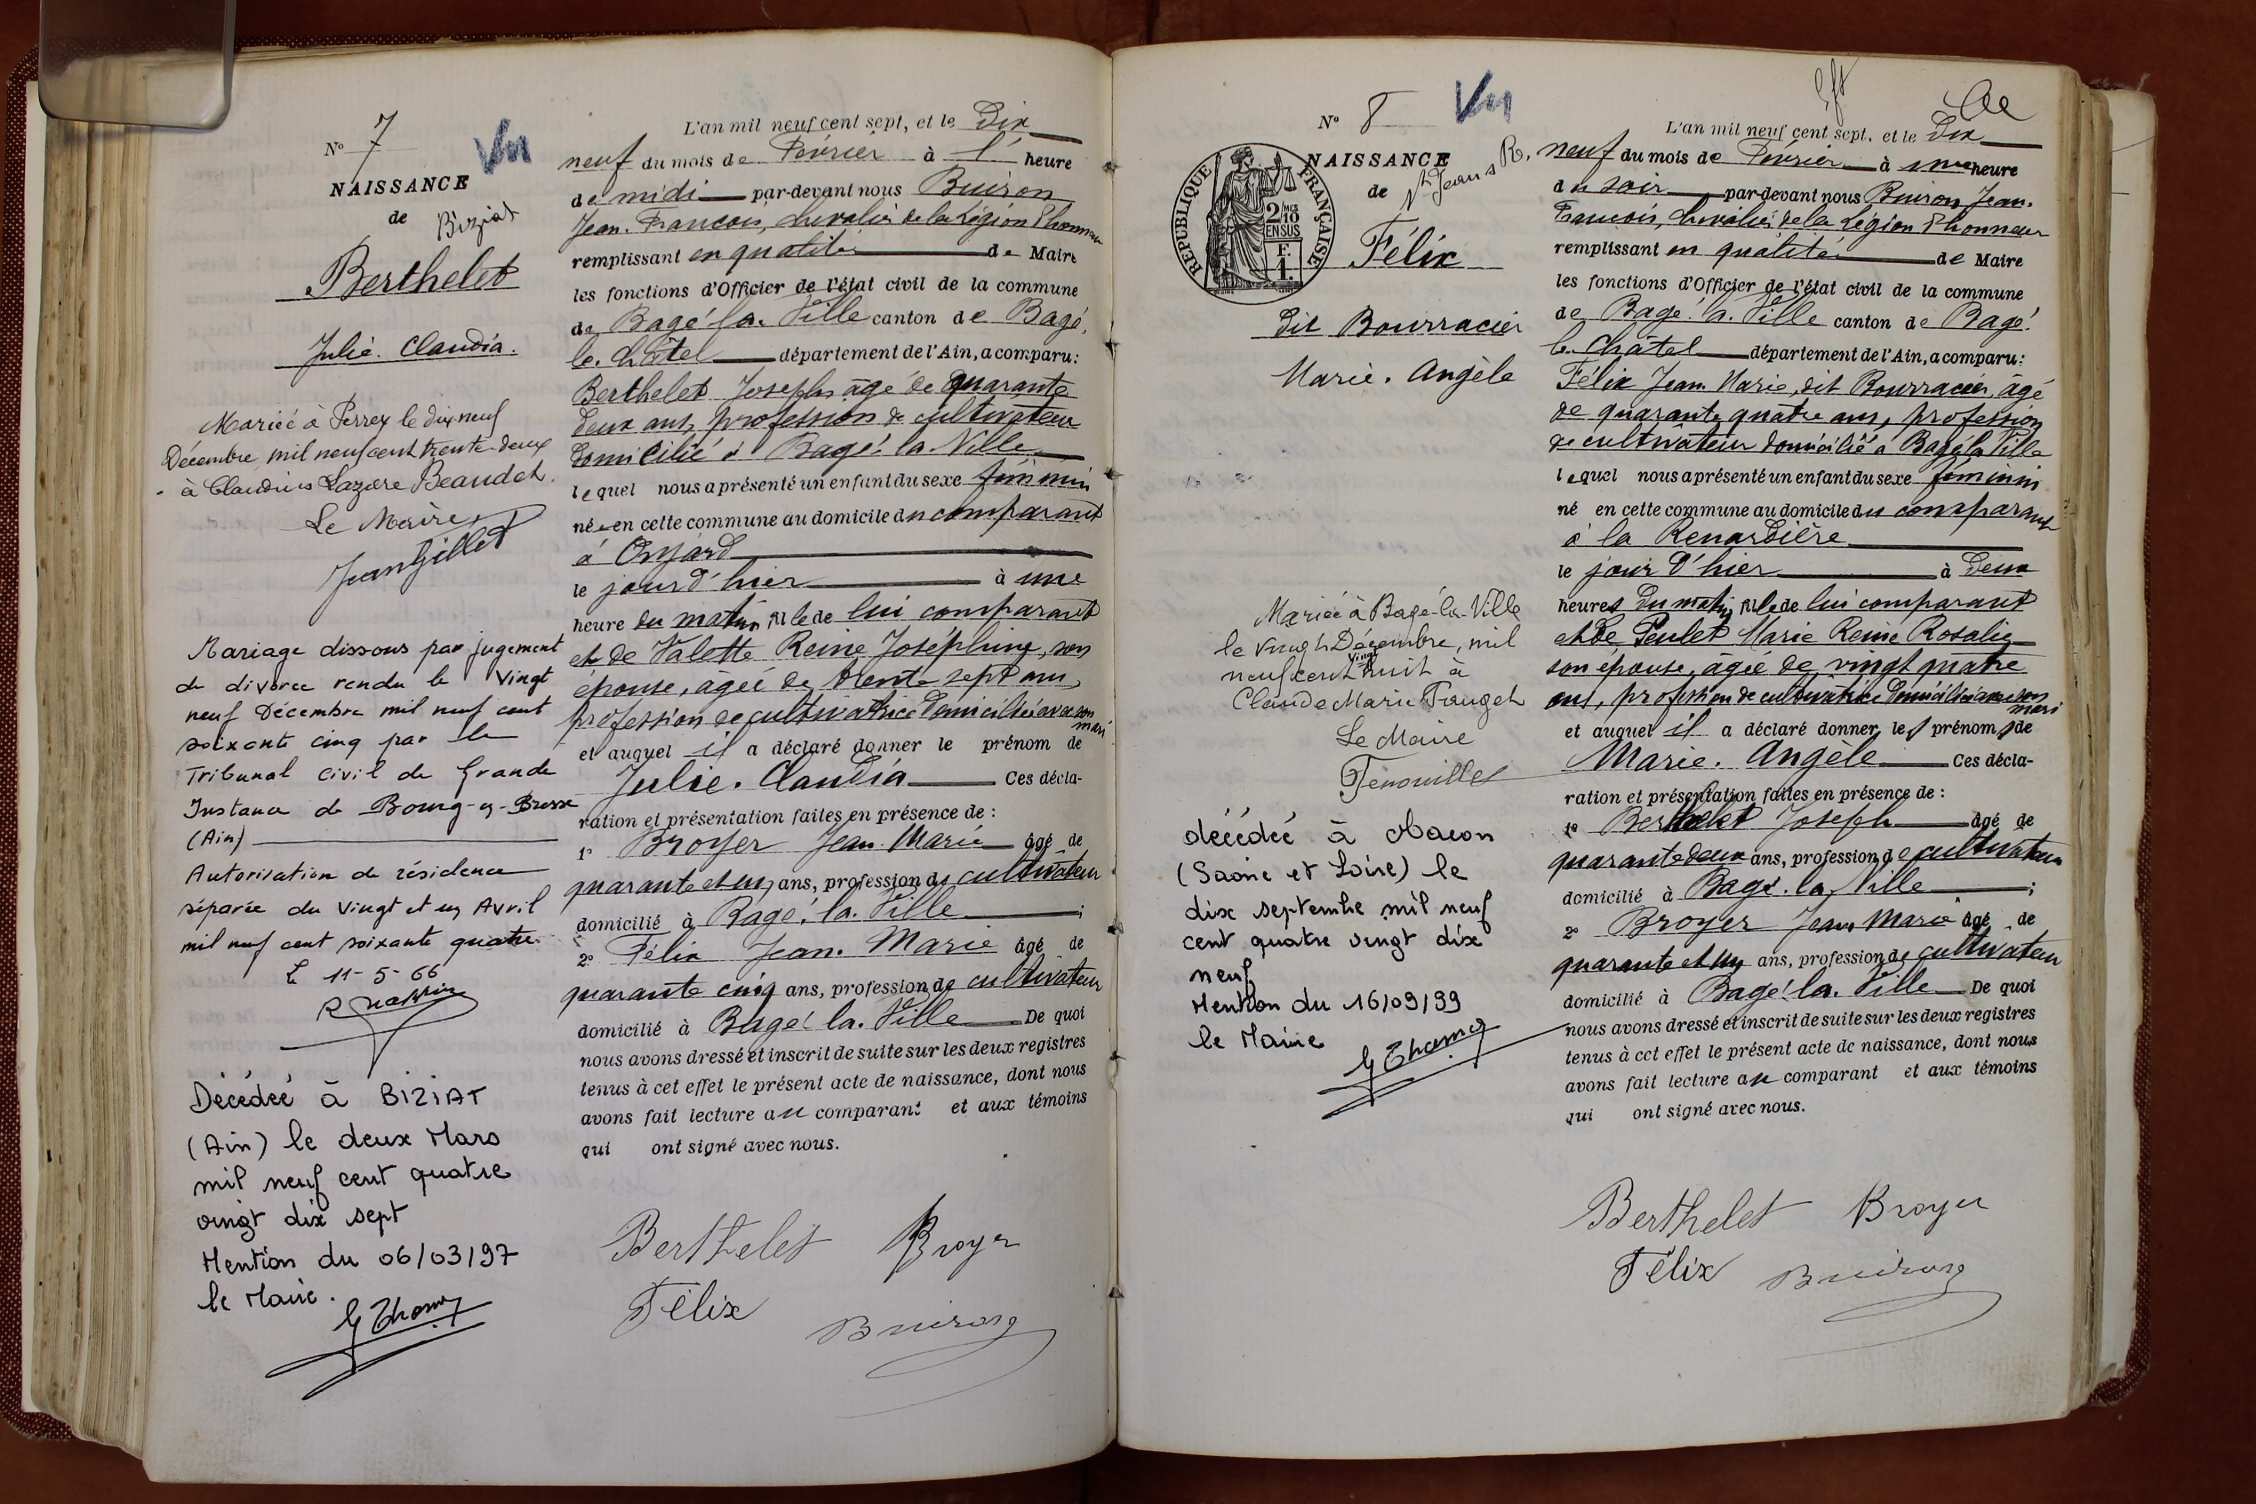 N° 7
Vu
NAISSANCE
de
Biziat
Berthelet
Julie. Claudia.
Mariée à Perrex le dix neuf
Décembre mil neuf cent trente-deux
à Claudius Lazare Beaudet.
Le Maire,
Jean Gillet
Mariage dissous par jugement
de divorce rendu le Vingt
neuf Décembre mil neuf cent
soixante cinq par le
Tribunal Civil de Grande
Instance de Bourg-en-Bresse
(Ain)
Autorisation de résidence
séparée du Vingt et un Avril
mil neuf cent soixante quatre.
Le 11-5-66
Décédée à BIZIAT
(Ain) le deux Mars
mil neuf cent quatre
vingt dix sept
Mention du 06/03/97
le Maire.
L'an mil neuf cent sept, et le Dix
neuf du mois de Février à 1' heure
de midi par-devant nous Buiron
Jean. François, chevalier de la Légion d'honneur
remplissant en qualité de Maire
les fonctions d'Officier de l'état civil de la commune
de Bagé. la. Ville canton de Bagé.
le. Châtel département de l'Ain, a comparu:
Berthelet Joseph, âgé de quarante
deux ans, profession de cultivateur
domicilié à Bagé. la. Ville
lequel nous a présenté un enfant du sexe féminin
née en cette commune au domicile du comparant
à
le jour d'hier à une
heure du matin fille de lui comparant
et de Valette Reine Joséphine, son
épouse, âgée de trente sept ans,
profession de cultivatrice domiciliée avec son
mari
et auquel il a déclaré donner le prénom de
Julie. Claudia Ces décla-
ration et présentation faites en présence de :
1° Broyer Jean. Marie âgé de
quarante et un ans, profession de cultivateur
domicilié à Bagé. la. Ville ;
2° Félix Jean. Marie âgé de
quarante cinq ans, profession de cultivateur
domicilié à Bagé. la. Ville De quoi
nous avons dressé et inscrit de suite sur les deux registres
tenus à cet effet le présent acte de naissance, dont nous
avons fait lecture au comparant et aux témoins
qui ont signé avec nous.
Berthelet Broyer
Félix Buiron
N° 8
Vu
NAISSANCE
de
St Jean s R.
RÉPUBLIQUE FRANÇAISE
2/10 MES
EN SUS
F.
1.
Félix
dit Bourracier
Marie. Angèle
Mariée à Bagé-la-Ville
le vingt Décembre, mil
vingt
neuf cent huit à
Claude Marie Fauget
Le Maire
décédée à Macon
(Saone et Loire) le
dix septembre mil neuf
cent quatre vingt dix
neuf
Mention du 16/09/99
le Maire
L'an mil neuf cent sept, et le Dix
neuf du mois de Février à une heure
du soir par-devant nous Buiron Jean.
François, chevalier de la Légion d'honneur
remplissant en qualité de Maire
les fonctions d'Officier de l'état civil de la commune
de Bagé. la. Ville canton de Bagé.
le. Châtel département de l'Ain, a comparu:
Félix Jean Marie, dit Bourracier, âgé
de quarante quatre ans, profession
de cultivateur domicilié à Bagé la Ville
lequel nous a présenté un enfant du sexe féminin
né en cette commune au domicile du comparant
à la Renardière
le jour d'hier à deux
heures du matin fille de lui comparant
et de Peulet Marie Reine Rosalie
son épouse, âgée de vingt quatre
ans, profession de cultivatrice domiciliée avec son
mari
et auquel il a déclaré donner les prénoms de
Marie. Angèle Ces décla-
ration et présentation faites en présence de :
1° Berthelet Joseph âgé de
quarante deux ans, profession de cultivateur
domicilié à Bagé. la. Ville ;
2° Broyer Jean Marie âgé de
quarante et un ans, profession de cultivateur
domicilié à Bagé. la. Ville De quoi
nous avons dressé et inscrit de suite sur les deux registres
tenus à cet effet le présent acte de naissance, dont nous
avons fait lecture au comparant et aux témoins
qui ont signé avec nous.
Berthelet Broyer
Félix Buiron